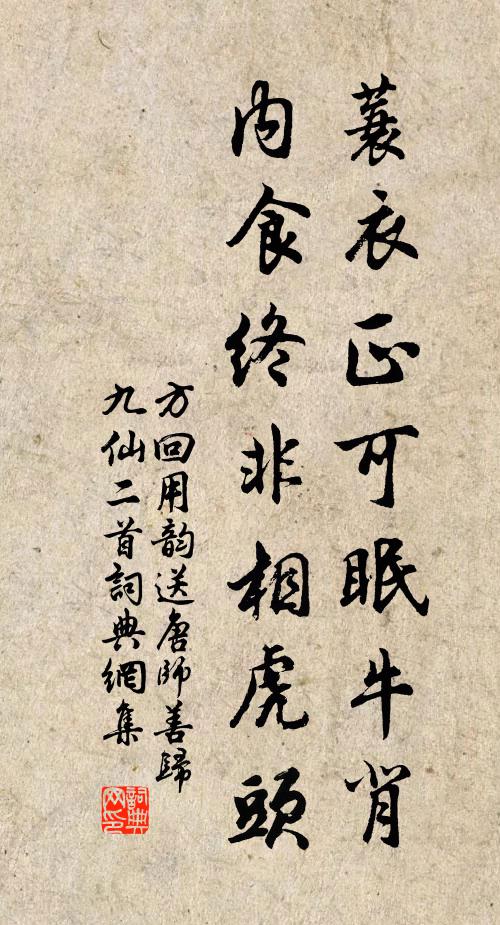 蓑衣正可眠牛背
肉食終非相虎頭
方回用韵送唐師善歸
九仙二首詞典網集
詞典
网印